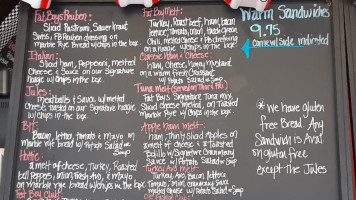 Fat Boys Reuben:
Sliced Pastrami, Sauerkraut
Swiss, FB Reuben dressing on
marble Rye Bread w/chips in the box
Italian:
Sliced Ham, Pepperoni, melted
Cheese & Sauce on our Signature
hoagie w/chips in the box
Jules:
meatballs & Sauce w/melted
cheese based on our Signature hoagie
w/chips in the box
BLT
Bacon, lettuce, tomato & mayo on
marble rye Bread w/ Potato Salad or
Soup
Hottie
a melt of cheese, Turkey, Roasted
bell Peppers, onion, fresh Avo, & mayo
on marble rye bread w/chips in the box
Fat Boy Club:
Fat Boy melt:
Turkey, Roast Beef, Ham, Bacon
Lettuce, Tomato, onion, fresh Green
Chili, melted cheese & FB dressing
on a hoagie w/chips in the box!
Classic Ham & Cheese
Ham, Cheese, mayo, mustard
on a warm fresh Croissant
w/ Potato Salad or Soup
Tuna melt
Fat Boys Signature Tuna mix,
Sliced cheese melted, on Toasted
Marble Rye w/ chips in the box.
Apple Ham melt
Ham, Thinly Sliced Apples on
a melt of cheese & a Toasted
Bell w/ Signature Cranberry
Sauce w/ Potato Salad or Soup
Turkey Avo melt
Turkey, Avo, Bacon, Lettuce
Tomato, onion, Cranberry Sauce
melted cheese w/ Potato Salad or Soup
Warm Sandwiches
9.95
Come w/ side indicated
* We have gluten
free Bread Any
Sandwich is Avail
on gluten free
except The Jules